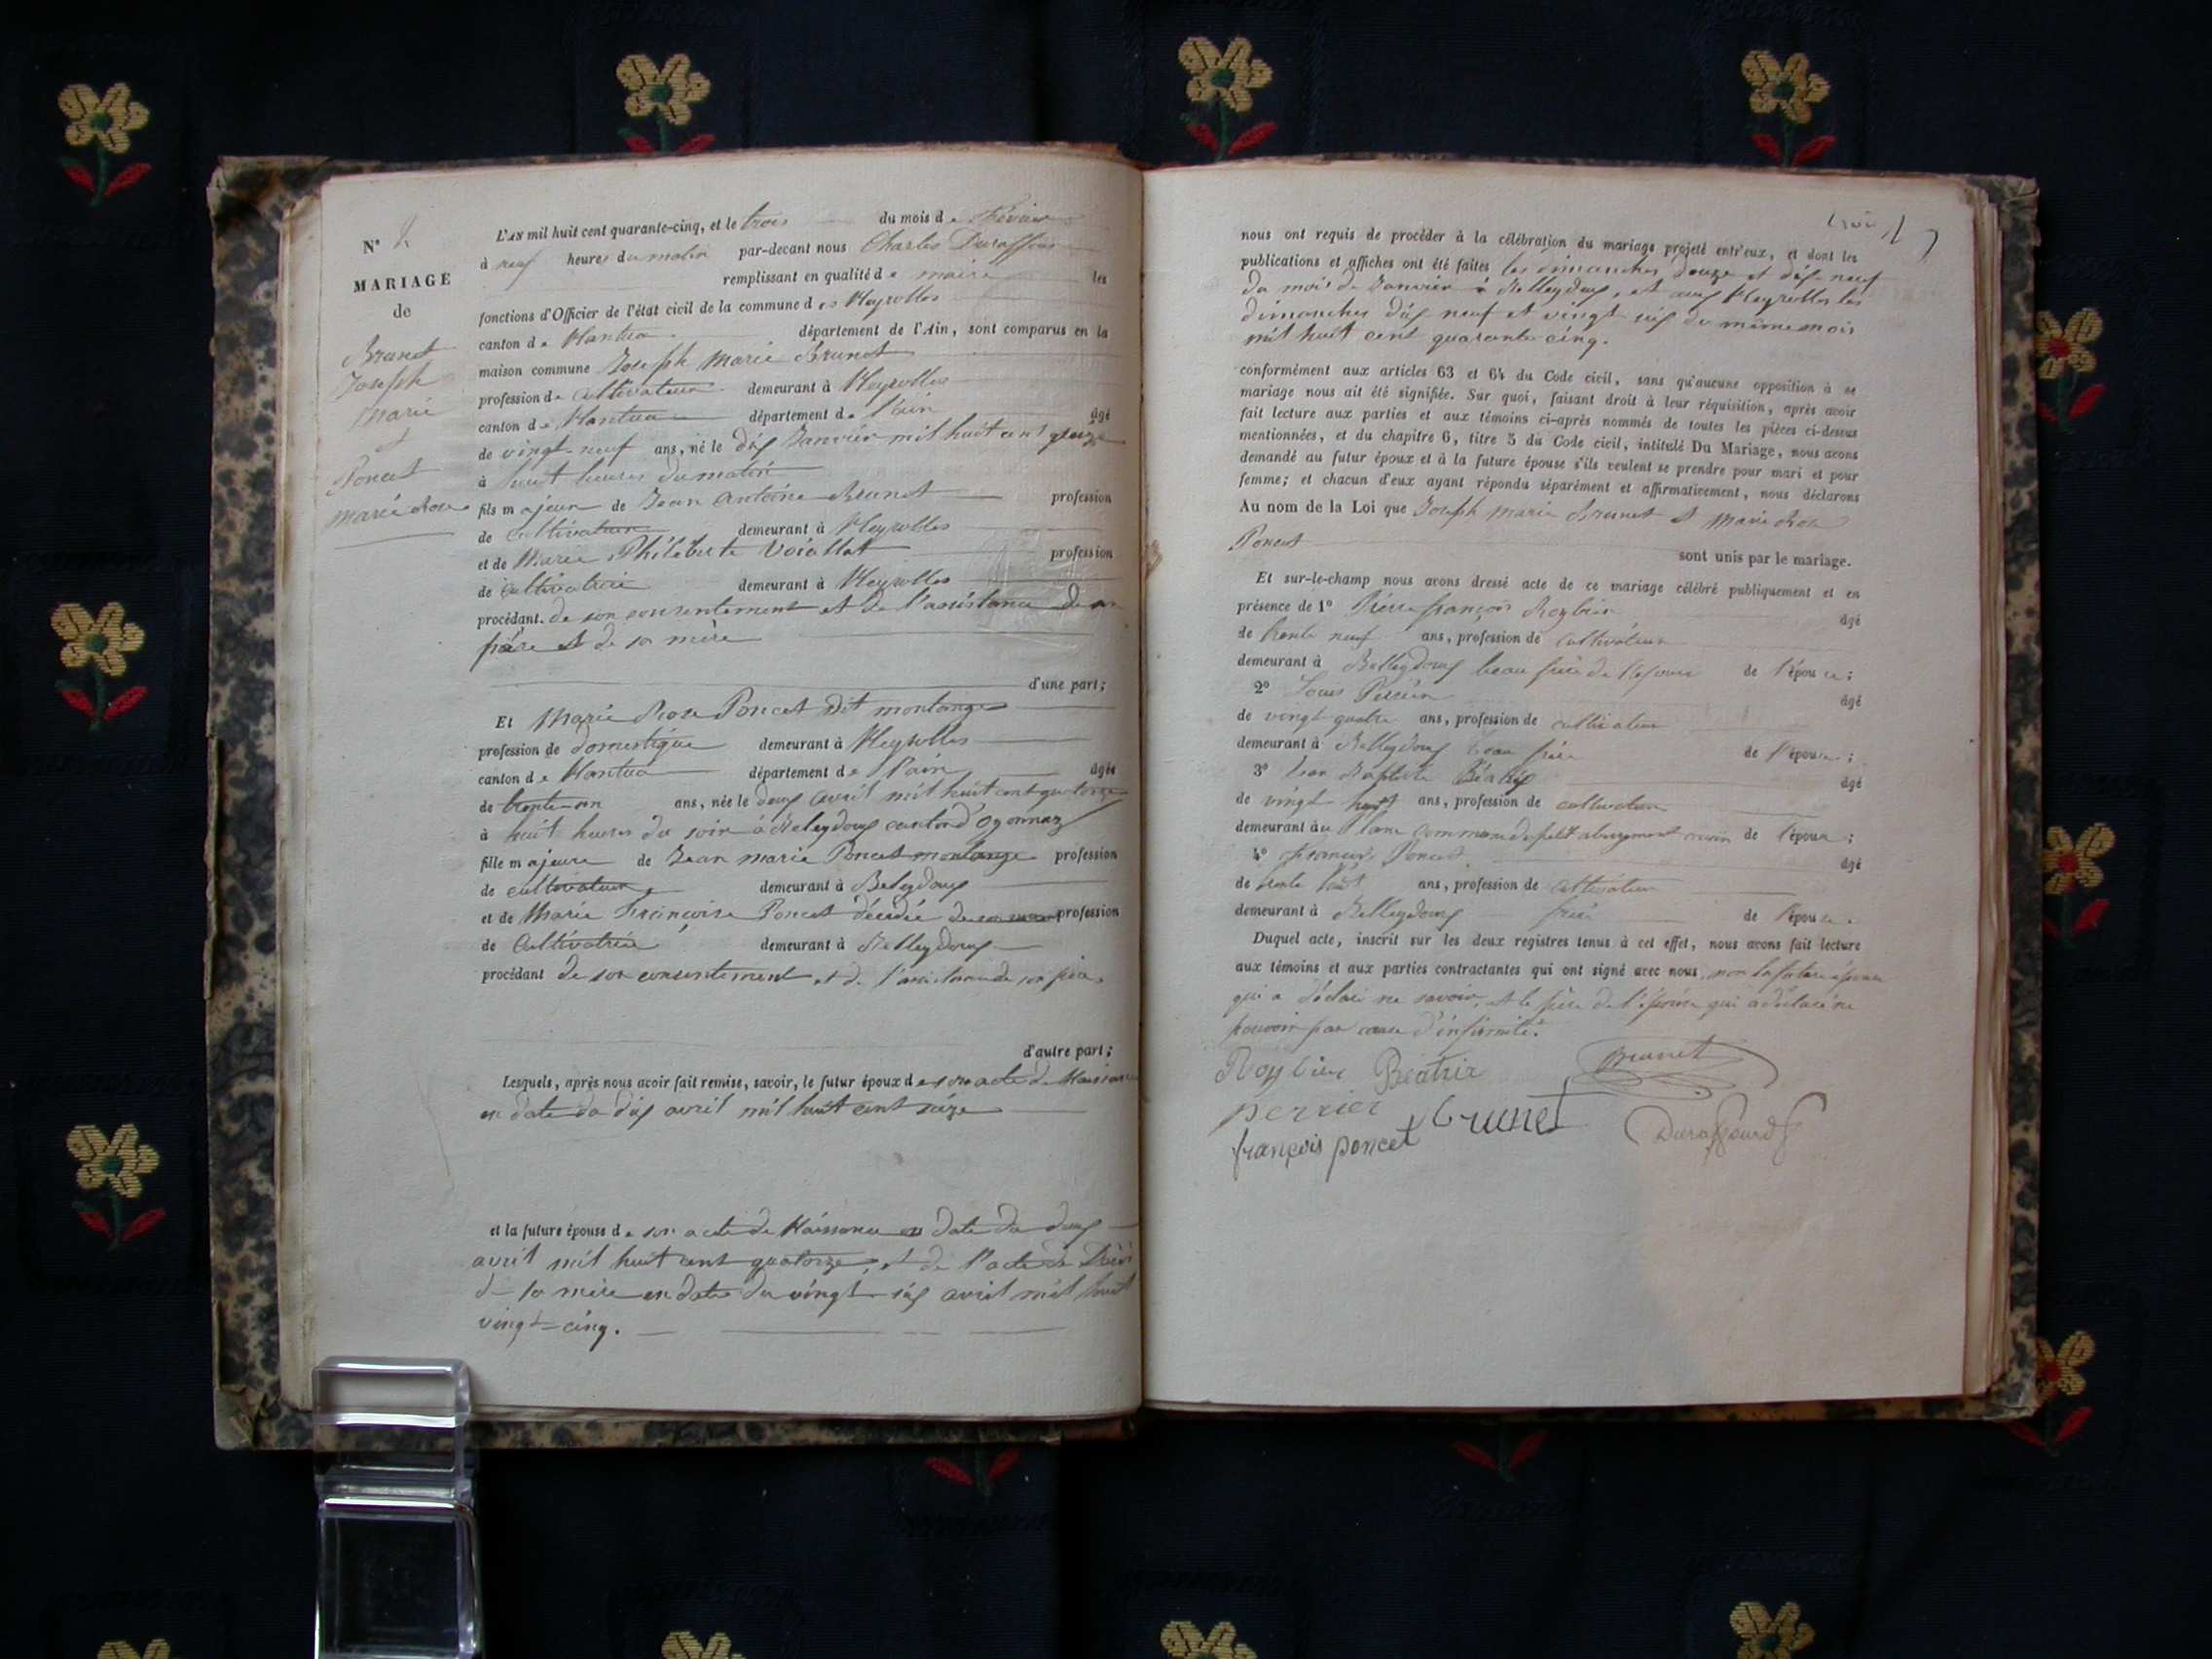 N° 2
MARIAGE
de
Brunet
Joseph
Marie
et
Poncet
Marie Rose
L'AN mil huit cent quarante-cinq, et le trois du mois de Février
à neuf heures du matin par-devant nous Charles Duraffour
remplissant en qualité de maire les
fonctions d'Officier de l'état civil de la commune des Neyrolles
canton de Nantua département de l'Ain, sont comparus en la
maison commune Joseph Marie Brunet
profession de cultivateur demeurant à Neyrolles
canton de Nantua département de l'ain âgé
de vingt-neuf ans, né le dix Janvier mil huit cent
à huit heures du matin
fils majeur de Jean Antoine Brunet profession
de cultivateur demeurant à Neyrolles
et de Marie Philiberte Voiallat profession
de cultivatrice demeurant à Neyrolles
procédant de son consentement et de l'assistance de son
père et de sa mère
d'une part;
Et Marie Rose Poncet dit montange
profession de domestique demeurant à Neyrolles
canton de Nantua département de l'ain âgée
de trente-un ans, née le deux avril mil huit cent quatorze
à huit heures du soir à Beleydoux canton d'Oyonnaz
fille majeure de Jean marie Poncet montange profession
de cultivateur demeurant à Beleydoux
et de Marie Françoise Poncet décédée de son vivant profession
de Cultivatrice demeurant à Belleydoux
procédant de son consentement et de l'assistance de son père.
d'autre part;
Lesquels, après nous avoir fait remise, savoir, le futur époux de son acte de Naissance
en date du dix avril mil huit cent seize
et la future épouse de son acte de Naissance en date du deux
avril mil huit cent quatorze, et de l'acte de Décès
de sa mère en date du vingt-six avril mil huit
vingt-cinq.
nous ont requis de procéder à la célébration du mariage projeté entr'eux, et dont les
publications et affiches ont été faites les dimanches douze et dix neuf
du mois de Janvier à Belleydoux, et aux Neyrolles les
dimanches dix neuf et vingt six du même mois
mil huit cent quarante cinq.
conformément aux articles 63 et 64 du Code civil, sans qu'aucune opposition à ce
mariage nous ait été signifiée. Sur quoi, faisant droit à leur réquisition, après avoir
fait lecture aux parties et aux témoins ci-après nommés de toutes les pièces ci-dessus
mentionnées, et du chapitre 6, titre 5 du Code civil, intitulé Du Mariage, nous avons
demandé au futur époux et à la future épouse s'ils veulent se prendre pour mari et pour
femme; et chacun d'eux ayant répondu séparément et affirmativement, nous déclarons
Au nom de la Loi que Joseph marie Brunet et Marie Rose
Poncet
sont unis par le mariage.
Et sur-le-champ nous avons dressé acte de ce mariage célébré publiquement et en
présence de 1° Pierre françois Roybier âgé
de trente neuf ans, profession de cultivateur
demeurant à Belleydoux beau frère de l'épouse de l'épouse;
2° Louis Perrier âgé
de vingt quatre ans, profession de cultivateur
demeurant à Belleydoux beau frère de l'épouse;
3° Jean Baptiste Béatrix âgé
de vingt huit ans, profession de cultivateur
demeurant au commune du petit abergement de l'époux;
4° François Poncet âgé
de trente huit ans, profession de cultivateur
demeurant à Belleydoux frère de l'épouse.
Duquel acte, inscrit sur les deux registres tenus à cet effet, nous avons fait lecture
aux témoins et aux parties contractantes qui ont signé avec nous, non la future épouse
qui a déclaré ne savoir, et le père de l'épouse qui a déclaré ne
pouvoir par cause d'infirmité.
Roybier Béatrix Brunet
perrier brunet
françois poncet Duraffourd